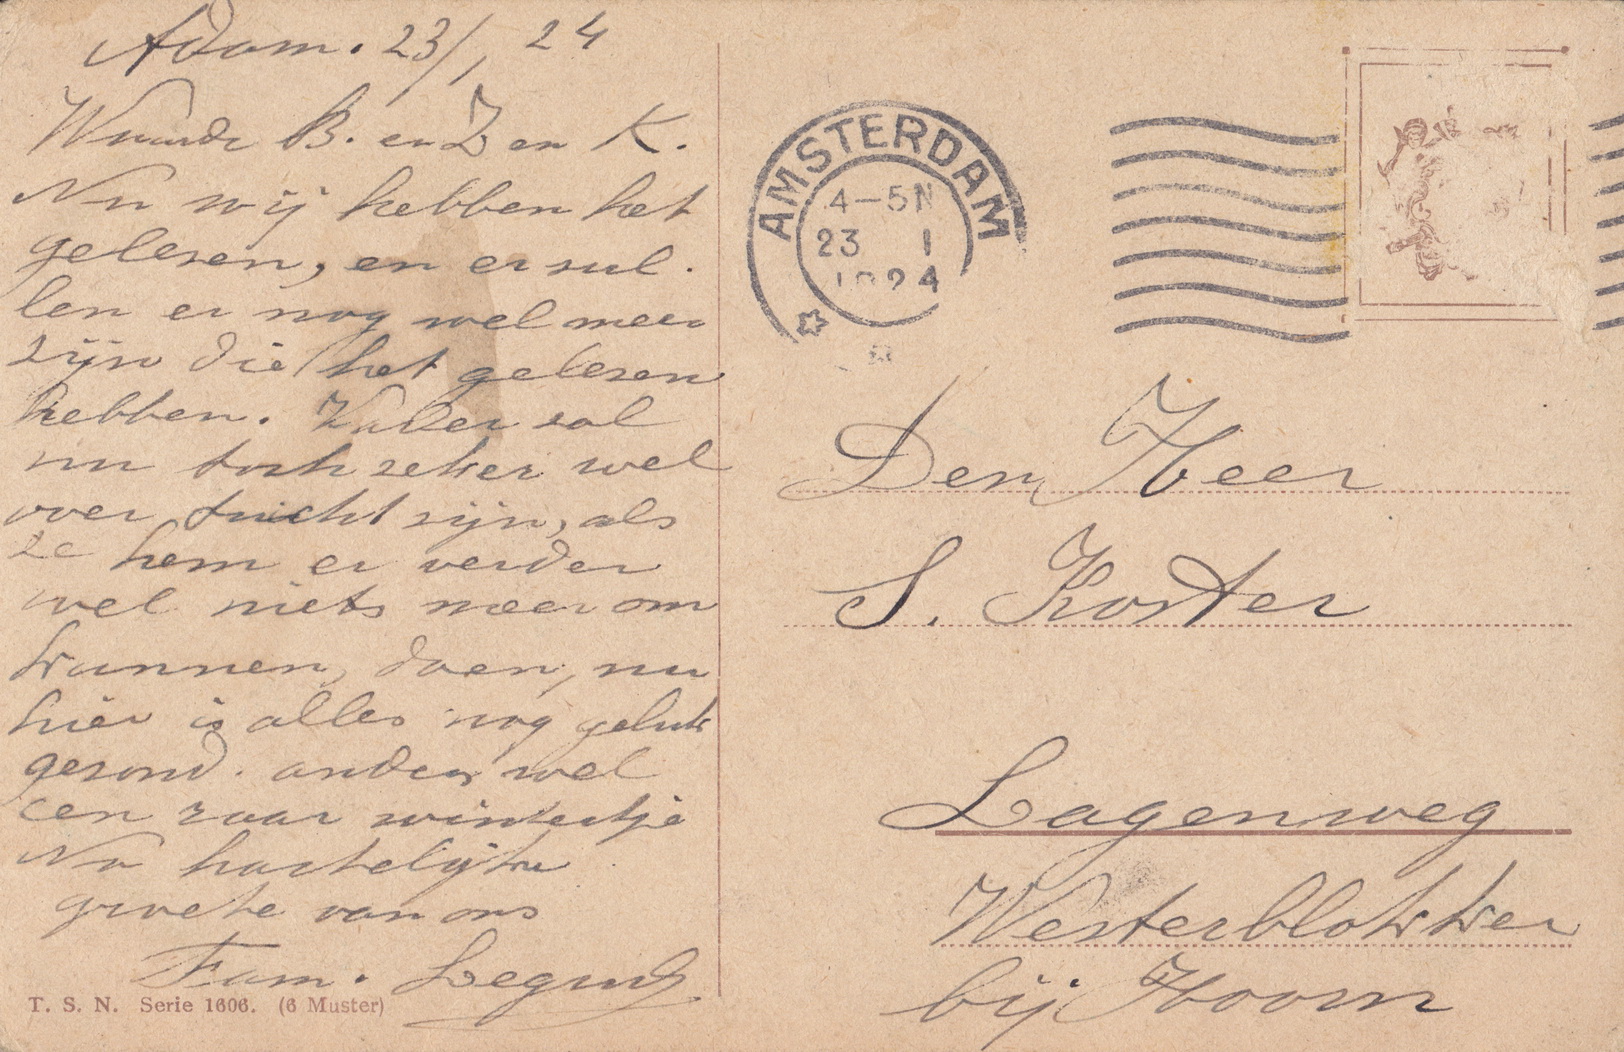 Adam. 23/1 24
Waarde B. en Z en K.
Nu wij hebben het
gelesen, en er sul.
len er nog wel meer
zijn die het gelesen
hebben. Vader sal
nu toch seker wel
over tuicht sijn, als
ze hem er verder
wel niets meer om
kunnen, doen, nu
hier is alles nog geluk
gesond. anders wel
een raar wintertje
Nu hartelijke
groete van ons
Fam.
T. S. N. Serie 1606. (6 Muster)
AMSTERDAM
4-5N
23 1
1924
Den Heer
S. Koster
Lagenweg
Westerblokker
bij Hoorn